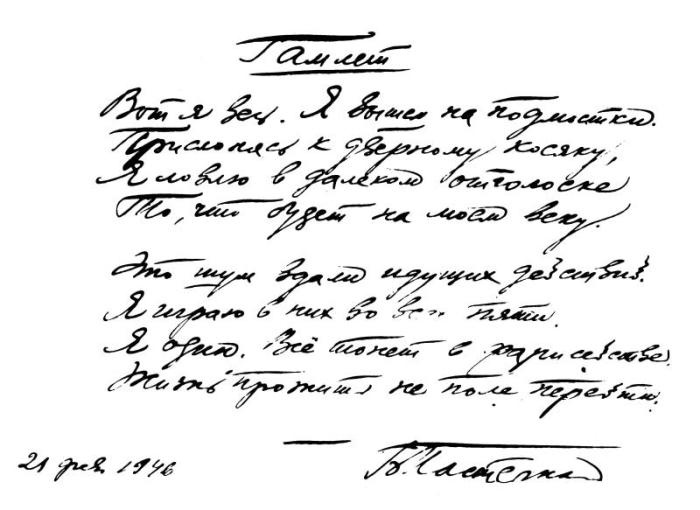 Гамлет
Вот я весь. Я вышел на подмостки.
Прислонясь к дверному косяку,
Я ловлю в далеком отголоске
То, что будет на моем веку.
Это шум вдали идущих действий.
Я играю в них во всех пяти.
Я один. Всё тонет в фарисействе.
Жизнь прожить не поле перейти.
21 фев 1946
Б. Пастернак